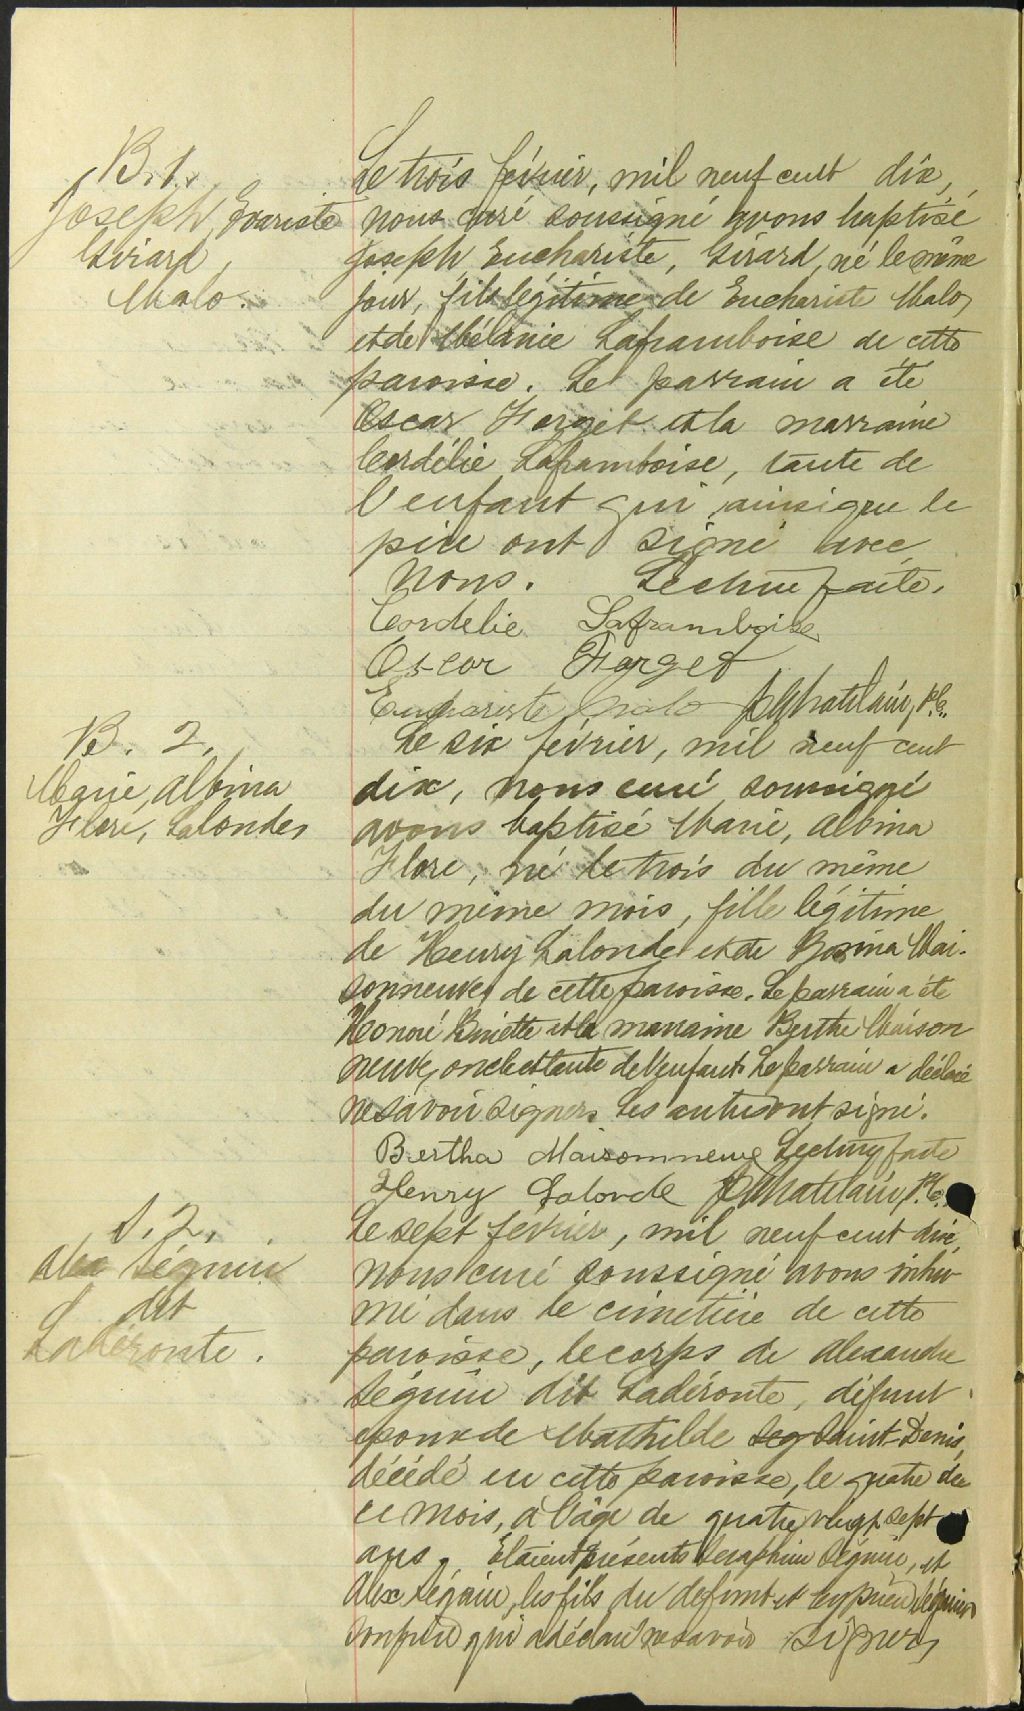 B. 1.
Joseph, Evariste
Girard,
Malo.
Le trois février, mil neuf cent dix,
nous curé soussigné avons baptisé
Joseph Euchariste, Girard, né le même
jour, fils légitime de Euchariste Malo,
et de Mélanie Laframboise de cette
paroisse. Le parrain a été
Oscar Forget et la marraine
Cordélie Laframboise, tante de
l'enfant qui ainsi que le
père ont signé avec
nous. Lecture faite.
Cordelie Laframboise
Oscar Forget
Euchariste Malo J. A. Chatelain, P.C.
B. 2.
Marie, Albina
Flore, Lalonde,
Le six février, mil neuf cent
dix, nous curé soussigné
avons baptisé Marie, Albina
Flore, né le trois du même
du même mois, fille légitime
de Henry Lalonde et de Rosina Mai-
sonneuve, de cette paroisse. Le parrain a été
Honoré et la marraine Berthe Maison
neuve, oncle et tante de l'enfant. Le parrain a déclaré
ne savoir signer. Les autres ont signé.
Bertha Maisonneuve Lecture faite
Henry Lalonde Chatelain, P.C.
S. 2.
Alex Séguin
dit
Ladéroute.
Le sept février, mil neuf cent dix,
nous curé soussigné avons inhu
mé dans le cimetière de cette
paroisse, le corps de Alexandre
Séguin dit Ladéroute, défunt
époux de Mathilde Seg Saint-Denis,
décédé en cette paroisse, le quatre du
ce mois, à l'âge de quatre vingt sept
ans. Étaient présents Seraphin Séguin, et
Alex Séguin, les fils du defunt et Cyprien Séguin
son frère qui a déclaré ne savoir signer,